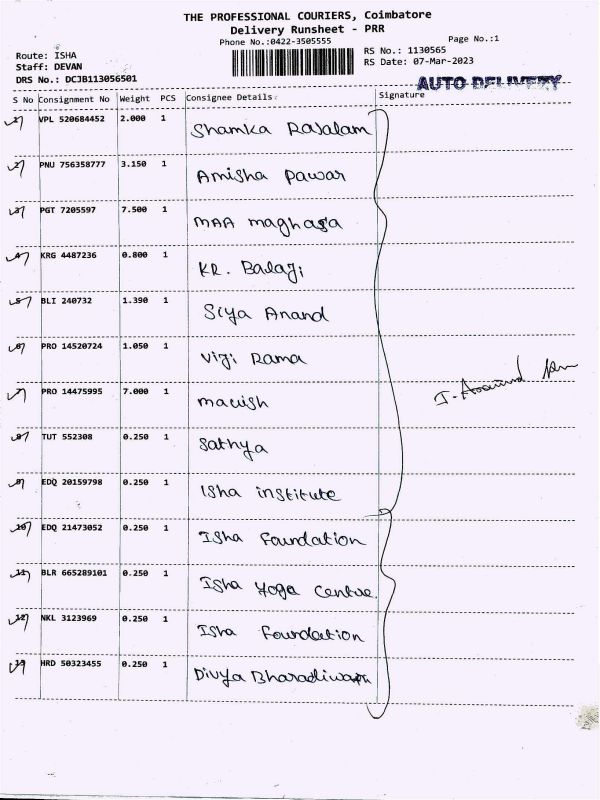 THE PROFESSIONAL COURIERS, Coimbatore
Delivery Runsheet - PRR
Phone No.:0422-3505555
Page No.:1
Route: ISHA
RS No.: 1130565
Staff: DEVAN
RS Date: 07-Mar-2023
DRS No.: DCJB113056501
AUTO DELIVERY
S No Consignment No Weight PCS Consignee Details Signature
1 VPL 520684452 2.000 1 Shamka Rajalam
2 PNU 756358777 3.150 1 Amisha Pawar
3 PGT 7205597 7.500 1 MAA maghasa
4 KRG 4487236 0.800 1 KR. Balaji
5 BLI 240732 1.390 1 Siya Anand
6 PRO 14520724 1.050 1 Viji Rama
7 PRO 14475995 7.000 1
8 TUT 552308 0.250 1 Sathya
9 EDQ 20159798 0.250 1 Isha institute
10 EDQ 21473052 0.250 1 Isha Foundation
11 BLR 665289101 0.250 1 Isha Yoga Centre.
12 NKL 3123969 0.250 1 Isha Foundation
13 HRD 50323455 0.250 1 Divya